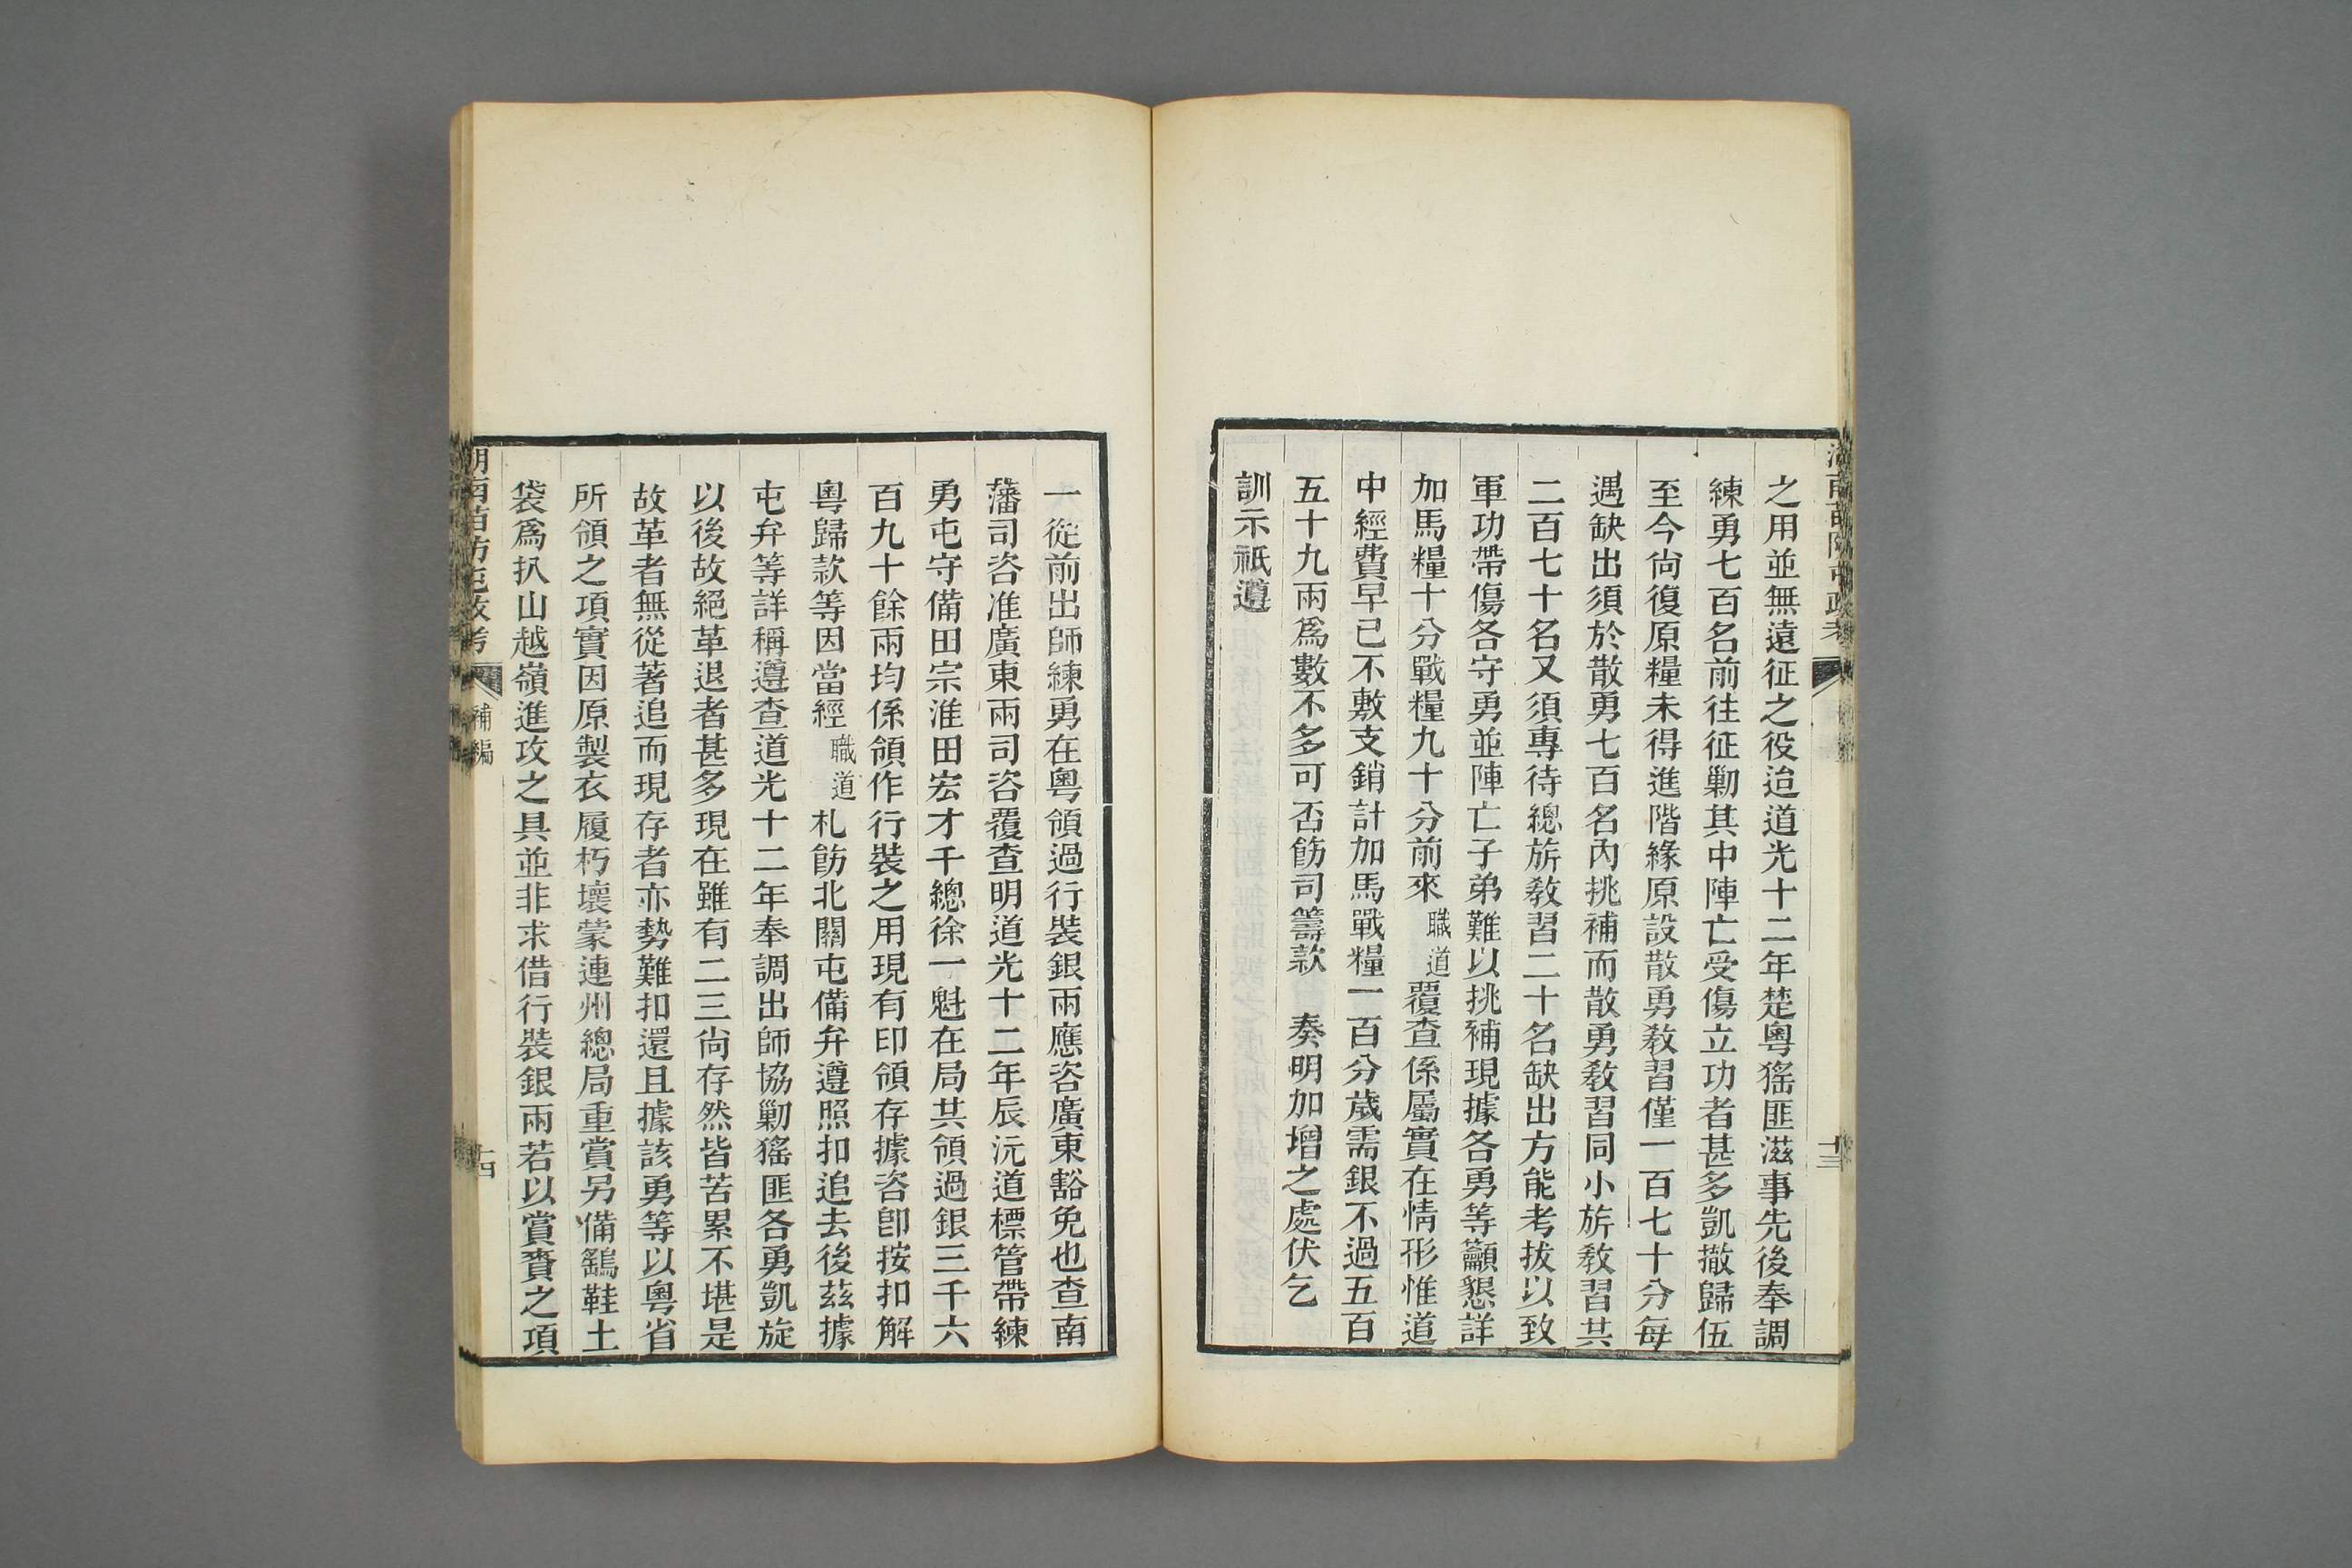 湖南苗防屯政考
十三
之用並無遠征之役迨道光十二年楚粵猺匪滋事先後奉調
練勇七百名前往征勦其中陣亡受傷立功者甚多凱撤歸伍
至今尚復原糧未得進階緣原設散勇教習僅一百七十分每
遇缺出須於散勇七百名內挑補而散勇教習同小旂教習共
二百七十名又須專待總旂教習二十名缺出方能考拔以致
軍功帶傷各守勇並陣亡子弟難以挑補現據各勇等籲懇詳
加馬糧十分戰糧九十分前來職道覆查係屬實在情形惟道
中經費早已不敷支銷計加馬戰糧一百分歲需銀不過五百
五十九兩爲數不多可否飭司籌款 奏明加增之處伏乞
訓示祇遵
一從前出師練勇在粵領過行裝銀兩應咨廣東豁免也查南
藩司咨准廣東兩司咨覆查明道光十二年辰沅道標管帶練
勇屯守備田宗淮田宏才千總徐一魁在局共領過銀三千六
百九十餘兩均係領作行裝之用現有印領存據咨卽按扣解
粵歸款等因當經職道札飭北關屯備弁遵照扣追去後茲據
屯弁等詳稱遵查道光十二年奉調出師協勦猺匪各勇凱旋
以後故絕革退者甚多現在雖有二三尚存然皆苦累不堪是
故革者無從著追而現存者亦勢難扣還且據該勇等以粵省
所領之項實因原製衣履朽壞蒙連州總局重賞另備鷄鞋土
袋爲扒山越嶺進攻之具並非求借行裝銀兩若以賞賚之項
湖南苗防屯政考
補編
十四